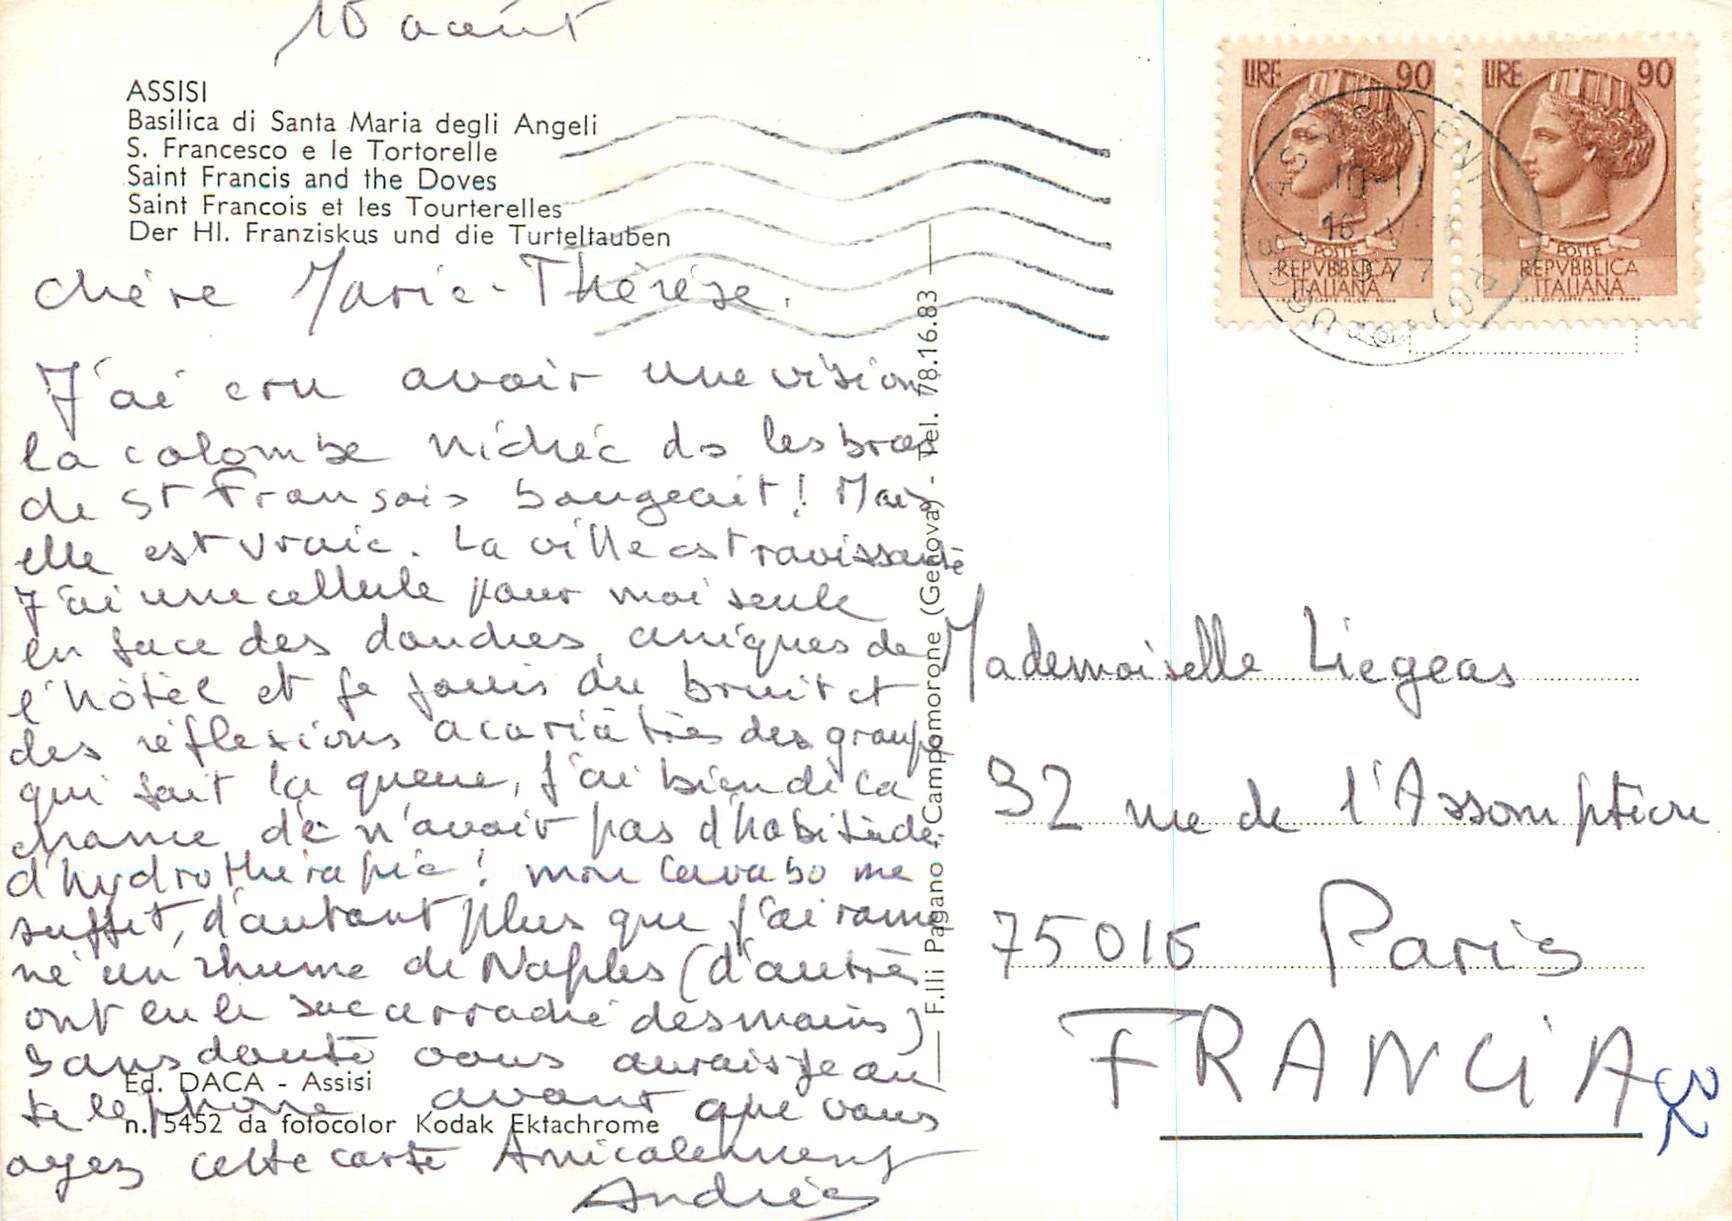 10 août
ASSISI
Basilica di Santa Maria degli Angeli
S. Francesco e le Tortorelle
Saint Francis and the Doves
Saint Francois et les Tourterelles
Der Hl. Franziskus und die Turteltauben
Chère Marie-Thérèse.
J'ai cru avoir une vision
la colombe nichée ds les bras
de St François bougeait! Mais
elle est vraie. La ville est ravissante
J'ai une cellule pour moi seule
en face des douches, uniques de
l'hôtel et je jouis du bruit et
des réflexions acariâtres des groupes
qui fait la queue, j'ai bien de la
chance de n'avoir pas d'habitude
d'hydrothérapie! mon lavabo me
suffit, d'autant plus que j'ai rame
né un rhume de Naples (d'autres
ont eu le sac arraché des mains)
Sans doute vous aurais-je au
téléphone avant que vous
ayez cette carte Amicalement
Andrée
Ed. DACA - Assisi
n. 5452 da fotocolor Kodak Ektachrome
F.lli Pagano - Campomorone (Genova) - Tel. 78.16.83
LIRE 90
POSTE
REPVBBLICA
ITALIANA
LIRE 90
POSTE
REPVBBLICA
ITALIANA
10-11
16
1977
Mademoiselle Liegeas
32 rue de l'Assomption
75016 Paris
FRANCIA